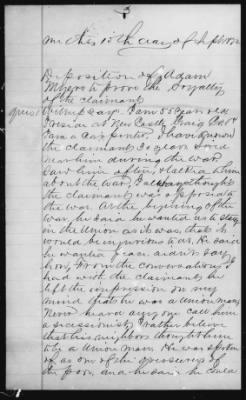 3
on this 15th day of Sept 187
Deposition of Adam
Myers to prove the Loyalty
of the claimant
I am 55 years old
I reside at New Castle Craig Co Va
I am a Carpenter, I have known
the claimant 30 years lived
near him during the war,
Saw him often & talked to him
about the war, I always thought
the claimant was opposed to
the war. At the beginning of the
war, he said he wanted us to stay
in the Union as it was, that it
would be injurious to us, he said
he wanted peace, didn't say
how, from the conversations I
had with the claimant, he
left the impression on my
mind that he was a Union man,
Never heard any one call him
a secessionist, I rather believe
that his neighbors thought him
to be a Union man, He was spoken
of as one of the overseers of
the poor, and he said he could